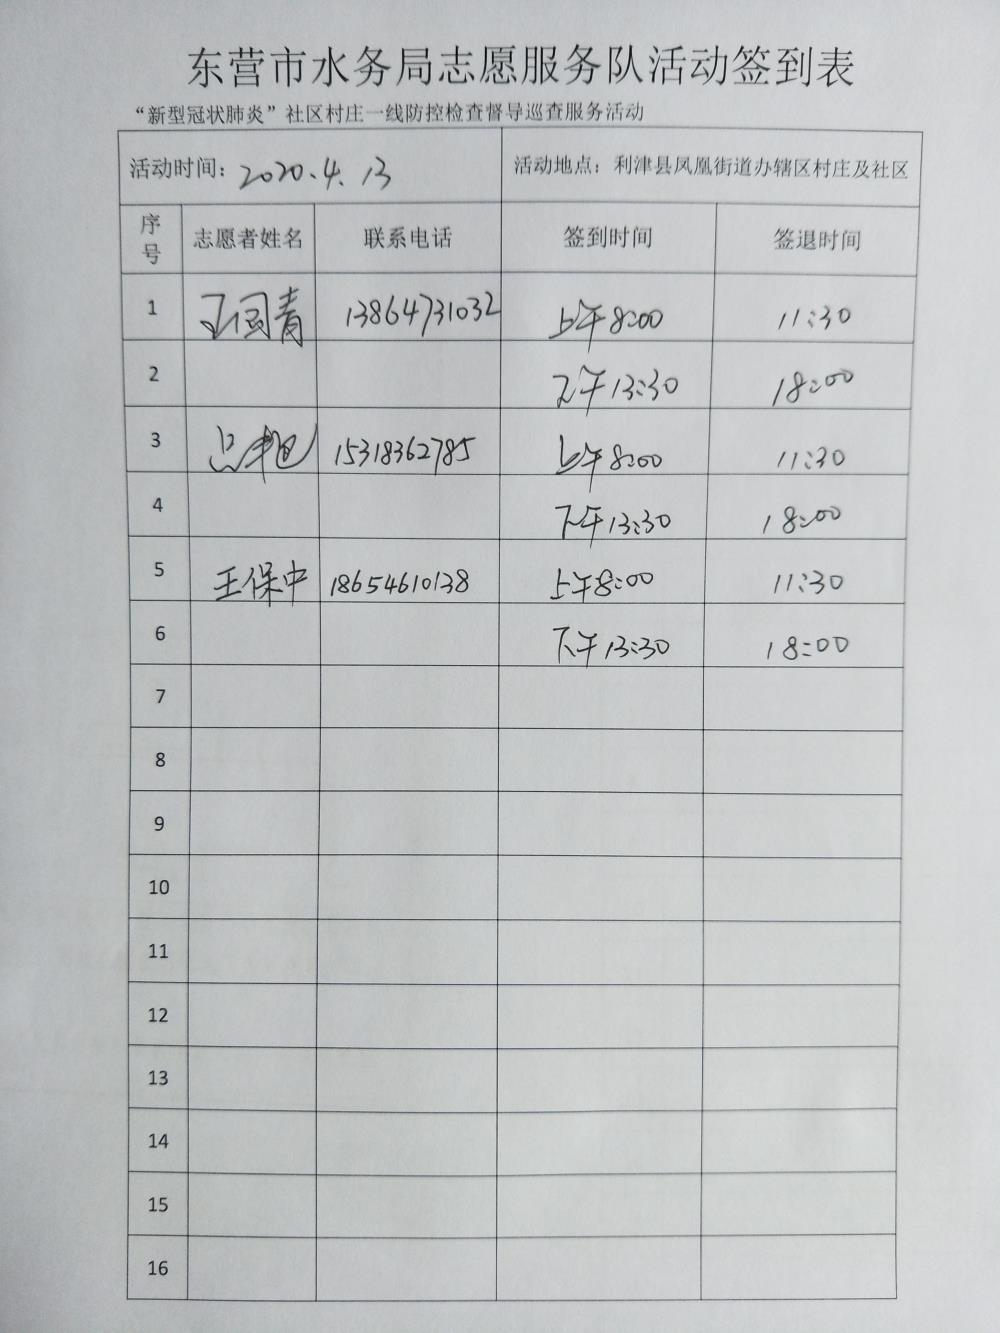 东营市水务局志愿服务队活动签到表
“新型冠状肺炎”社区村庄一线防控检查督导巡查服务活动
活动时间：2020.4.13 活动地点：利津县凤凰街道办辖区村庄及社区
序号 志愿者姓名 联系电话 签到时间 签退时间
1 王国青 13864731032 上午8:00 11:30
2 下午13:30 18:00
3 15318362785 上午8:00 11:30
4 下午13:30 18:00
5 王保中 18654610138 上午8:00 11:30
6 下午13:30 18:00
7
8
9
10
11
12
13
14
15
16